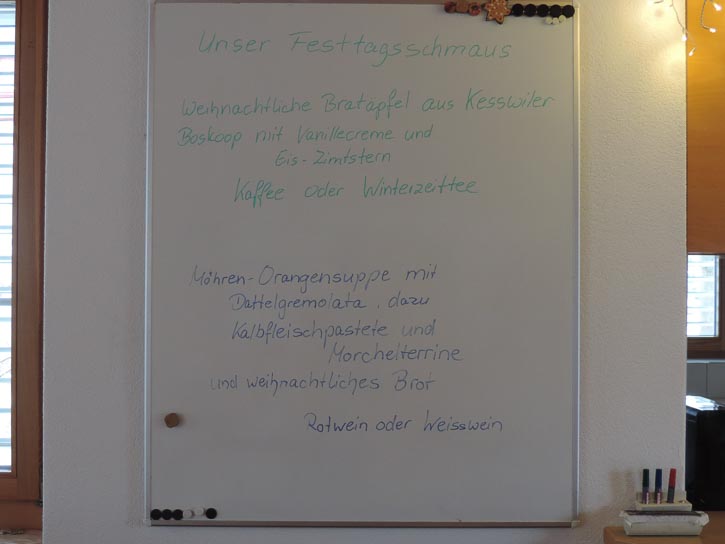 Unser Festtagsschmaus
Weihnachtliche Bratäpfel aus Kesswiler
Boskoop mit Vanillecreme und
Eis-Zimtstern
Kaffee oder Winterzeittee
Möhren-Orangensuppe mit
Dattelgremolata, dazu
Kalbfleischpastete und
Morchelterrine
und weihnachtliches Brot
Rotwein oder Weisswein